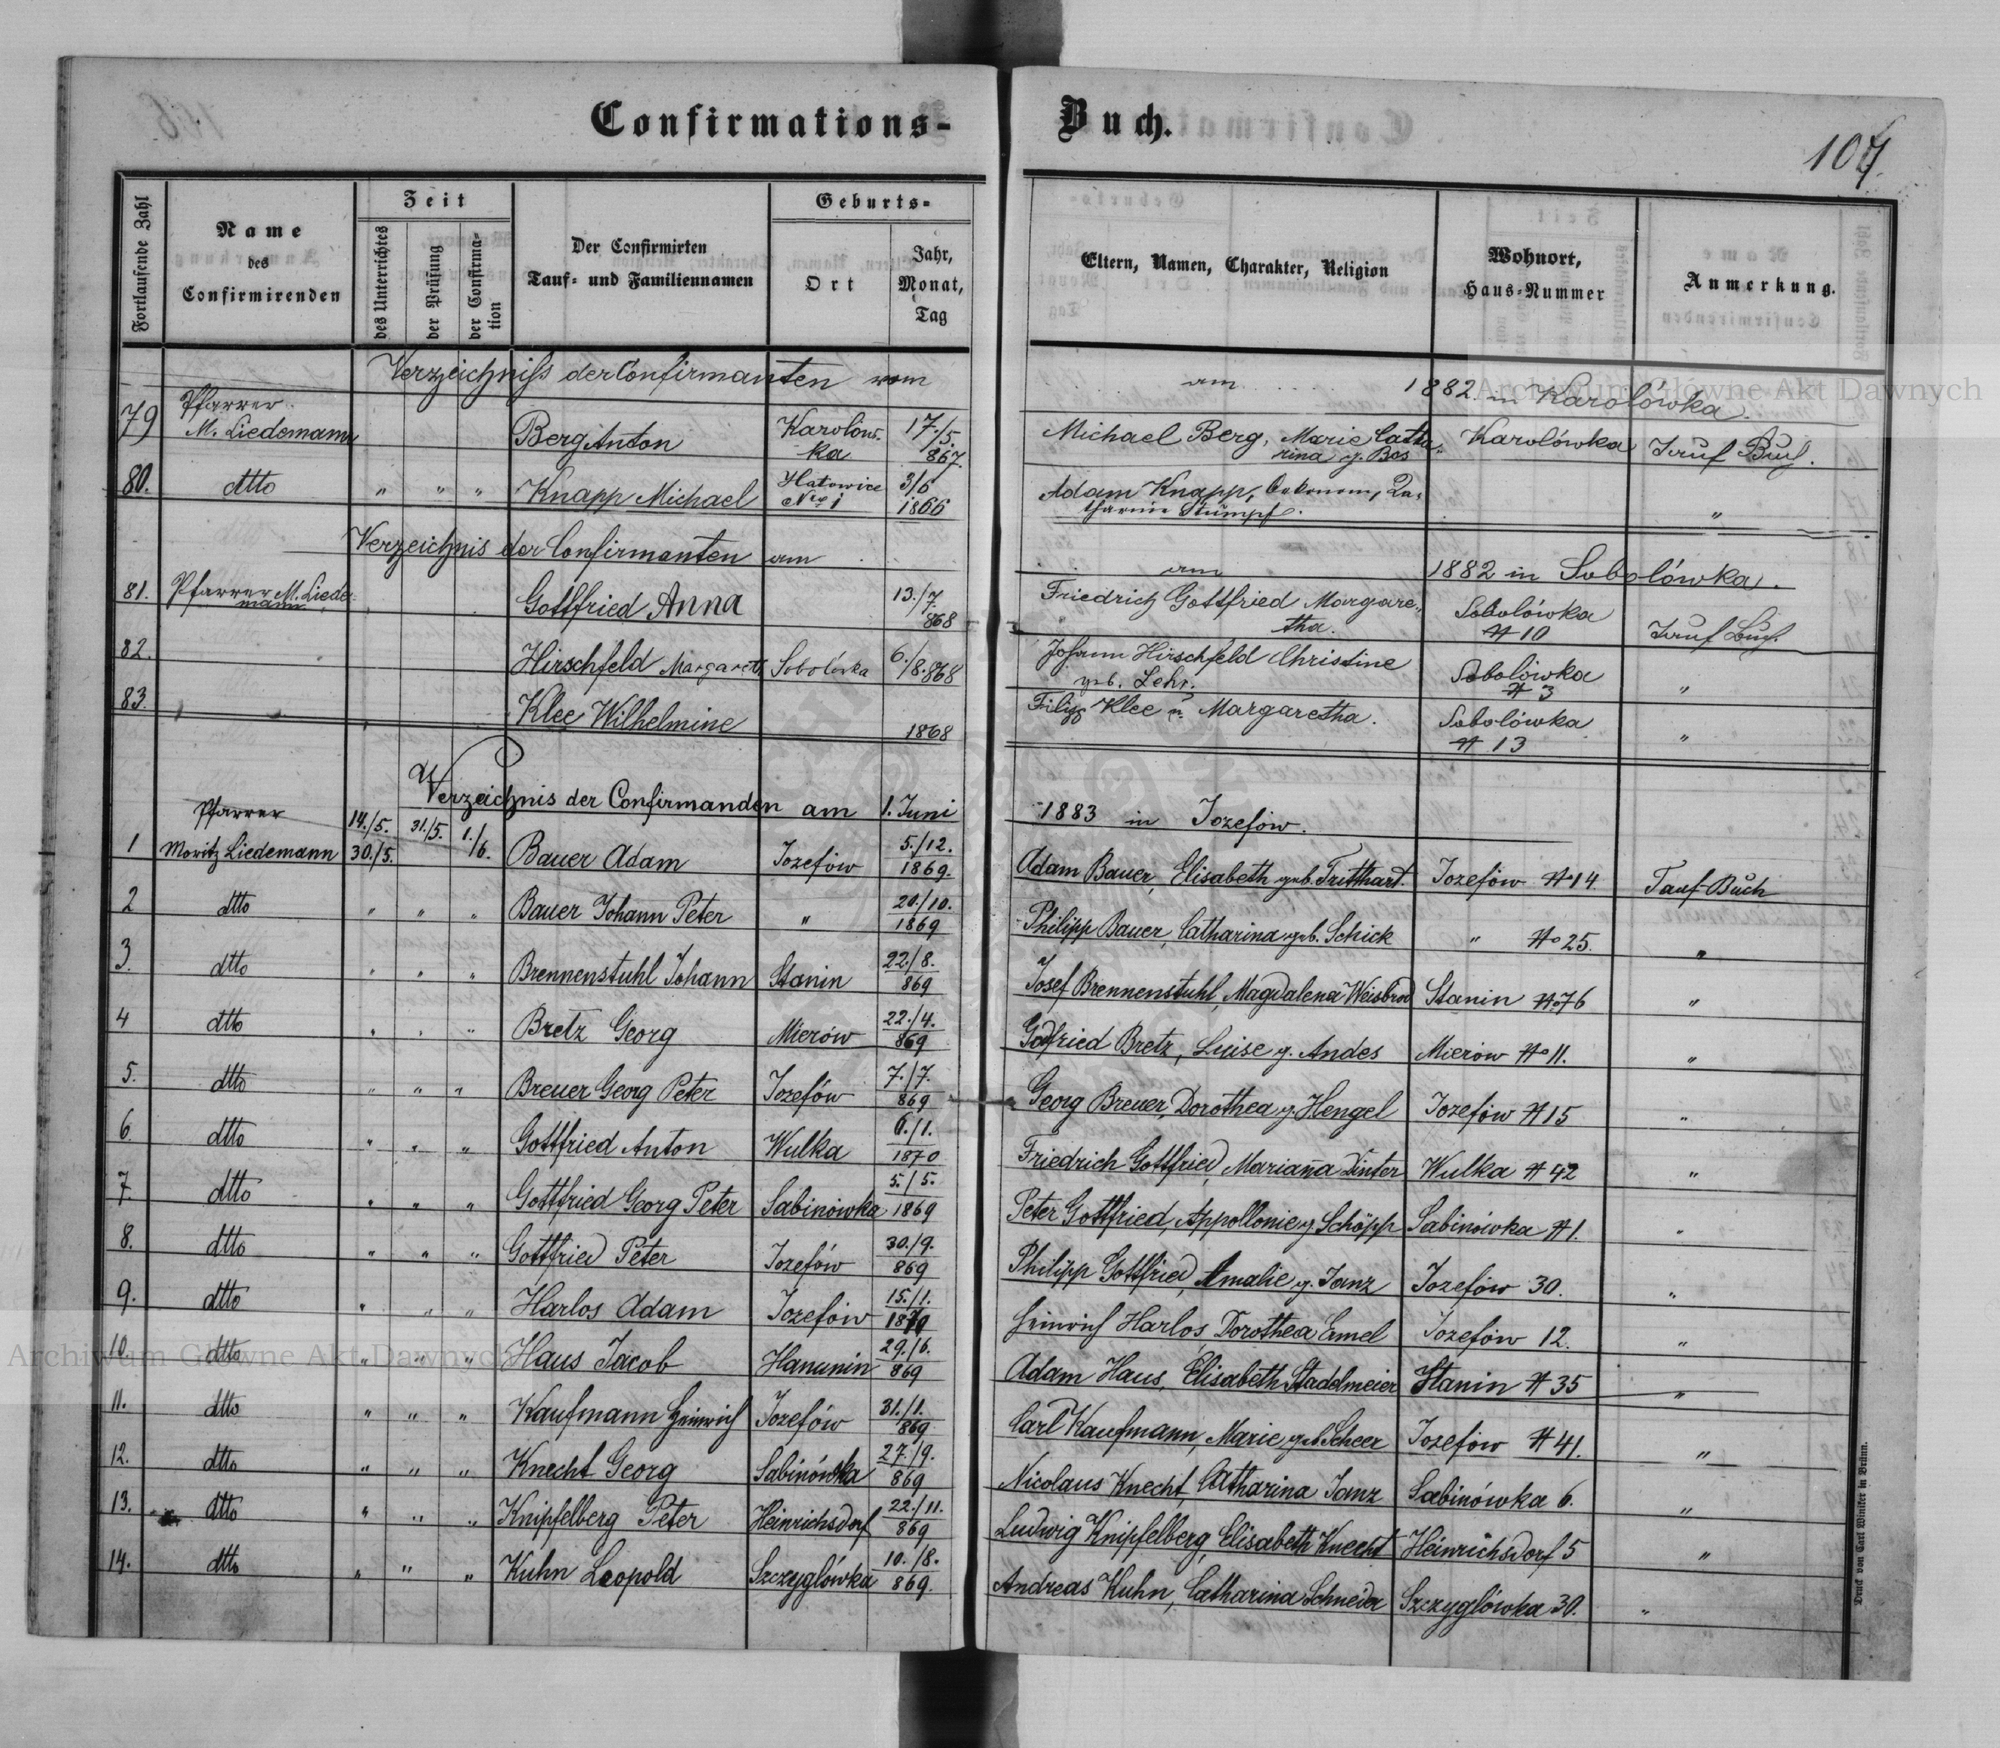 Confirmations-
Buch.
107.
Fortlaufende Zahl
Name
des
Confirmirenden
Zeit
des Unterrichtes
der Prüfung
der Confirma-
tion
Der Confirmirten
Tauf- und Familiennamen
Geburts-
Ort
Jahr,
Monat,
Tag
Eltern, Namen, Charakter, Religion
Wohnort,
Haus-Nummer
Anmerkung.
Verzeichniss der Confirmanten vom am 1882 in Karolówka.
Pfarrer
79 M. Liedemann Berg Anton Karolów- 17/5. Michael Berg, Marie Catha- Karolówka Tauf Buch.
ka 867. rina g. Bos
80. dtto " " " Knapp Michael Hatowice 3/6 Adam Knapp, Oekonom, Ca-
No 1 1866 tharina Stumpf. "
Verzeichnis der Confirmanten am am 1882 in Sobolówka.
81. Pfarrer M. Liede- Gottfried Anna 13./7. Friedrich Gottfried Margare- Sobolówka Tauf Buch.
mann 868 tha. # 10
82. Hirschfeld Margareth Sobolówka 6./8. 868 Johann Hirschfeld Christine Sobolówka "
geb. Lehr. # 3
83. Klee Wilhelmine 1868 Filipp Klee u. Margaretha. Sobolówka "
# 13
Verzeichnis der Confirmanden am 1. Juni 1883 in Jozefów.
Pfarrer 14./5. 31./5. 1./6. 5./12.
1 Moritz Liedemann 30./5. Bauer Adam Jozefów 1869. Adam Bauer, Elisabeth geb. Tritthart. Jozefów No 14. Tauf-Buch
2 dtto " " " Bauer Johann Peter " 20./10. 1869 Philipp Bauer, Catharina geb. Schick " No 25. "
3. dtto " " " Brennenstuhl Johann Stanin 22./8. 869 Josef Brennenstuhl, Magdalena Weisbrod Stanin No 76 "
4 dtto " " " Bretz Georg Mierów 22./4. 869 Gottfried Bretz, Luise g. Andes Mierów No 11. "
5. dtto " " " Breuer Georg Peter Jozefów 7./7. 869 Georg Breuer, Dorothea g. Hengel Jozefów # 15 "
6. dtto " " " Gottfried Anton Wulka 6./1. 1870 Friedrich Gottfried, Marianna Dinter Wulka # 42 "
7. dtto " " " Gottfried Georg Peter Sabinówka 5./5. 1869 Peter Gottfried, Appollonie g. Schöpp Sabinówka # 1. "
8. dtto " " " Gottfried Peter Jozefów 30./9. 869 Philipp Gottfried, Amalie g. Janz Jozefów 30. "
9. dtto " " " Harlos Adam Jozefów 15./1. 1870 Heinrich Harlos, Dorothea Ermel Jozefów 12. "
10. dtto " " " Haus Jacob Hanunin 29./6. 869 Adam Haus, Elisabeth Stadelmeier Stanin # 35 "
11. dtto " " " Kaufmann Heinrich Jozefów 31./1. 869 Carl Kaufmann, Marie geb. Scheer Jozefów # 41. "
12. dtto " " " Knecht Georg Sabinówka 27./9. 869 Nicolaus Knecht, Catharina Janz Sabinówka 6. "
13. dtto " " " Knipfelberg Peter Heinrichsdorf 22./11. 869 Ludwig Knipfelberg, Elisabeth Knecht Heinrichsdorf 5 "
14. dtto " " " Kuhn Leopold Szczyglówka 10./8. 869. Andreas Kuhn, Catharina Schneider Szczyglówka 30. "
Druck von Carl Winiker in Brünn.
Archiwum Główne Akt Dawnych
Archiwum Główne Akt Dawnych